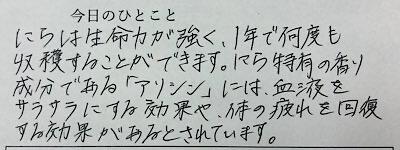 今日のひとこと
にらは生命力が強く、1年で何度も
収穫することができます。にら特有の香り
成分である「アリシン」には、血液を
サラサラにする効果や、体の疲れを回復
する効果があるとされています。